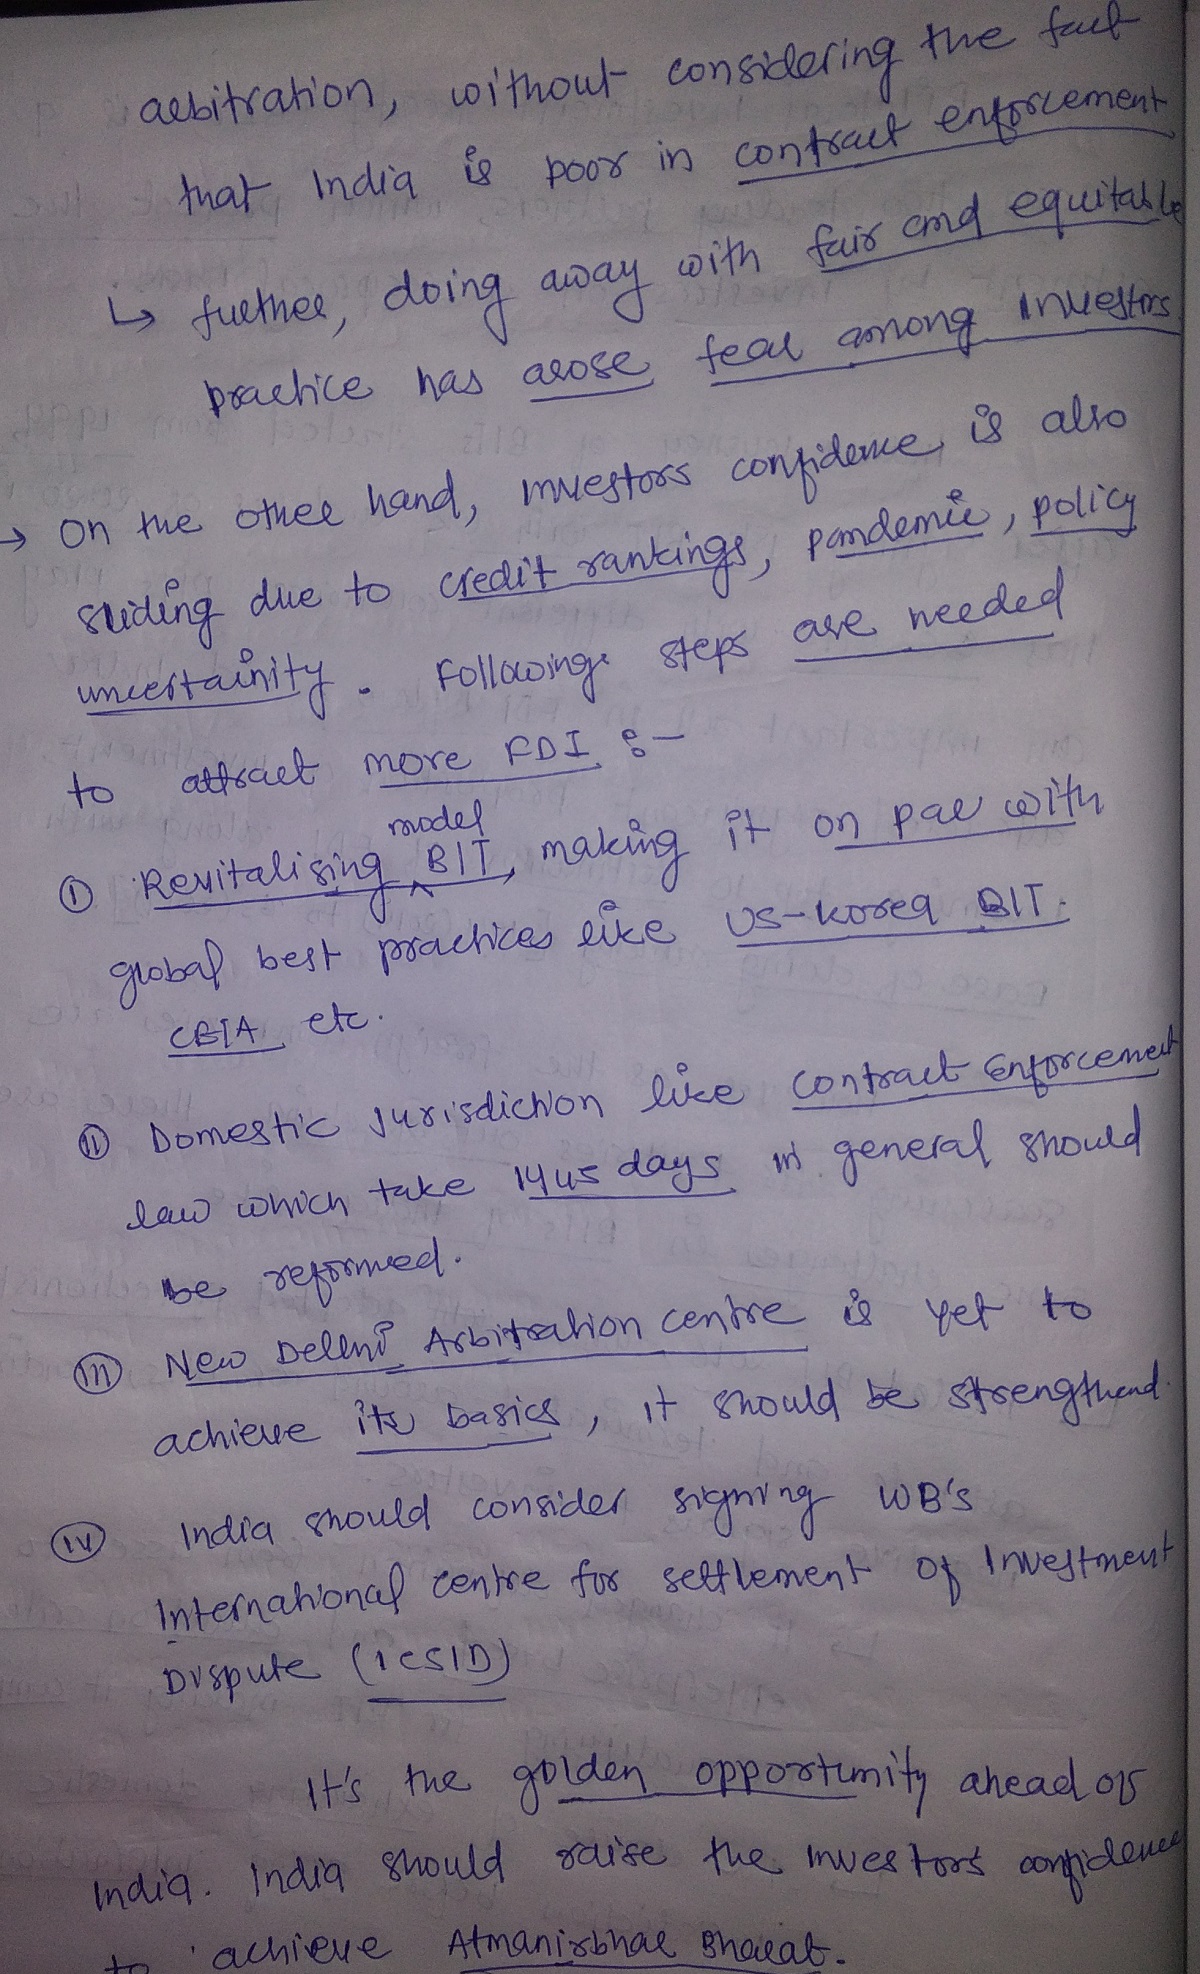 arbitration, without considering the fact
that India is poor in contract enforcement
↳ further, doing away with fair and equitable
practice has arose fear among investors
→ On the other hand, investors confidence is also
sliding due to credit rankings, pandemic, policy
uncertainity. Following steps are needed
to attract more FDI :-
model
① Revitalising ^ BIT, making it on par with
global best practices like US-Korea BIT.
CBTA etc.
(ii) Domestic Jurisdiction like contract Enforcement
law which take 1445 days in general should
be reformed.
(iii) New Delhi Arbitration centre is yet to
achieve its basics, it should be strengthend.
(iv) India should consider signing WB's
International centre for settlement of Investment
Dispute (ICSID)
It's the golden opportunity ahead of
India. India should raise the investors confidence
to achieve Atmanirbhar Bharat.